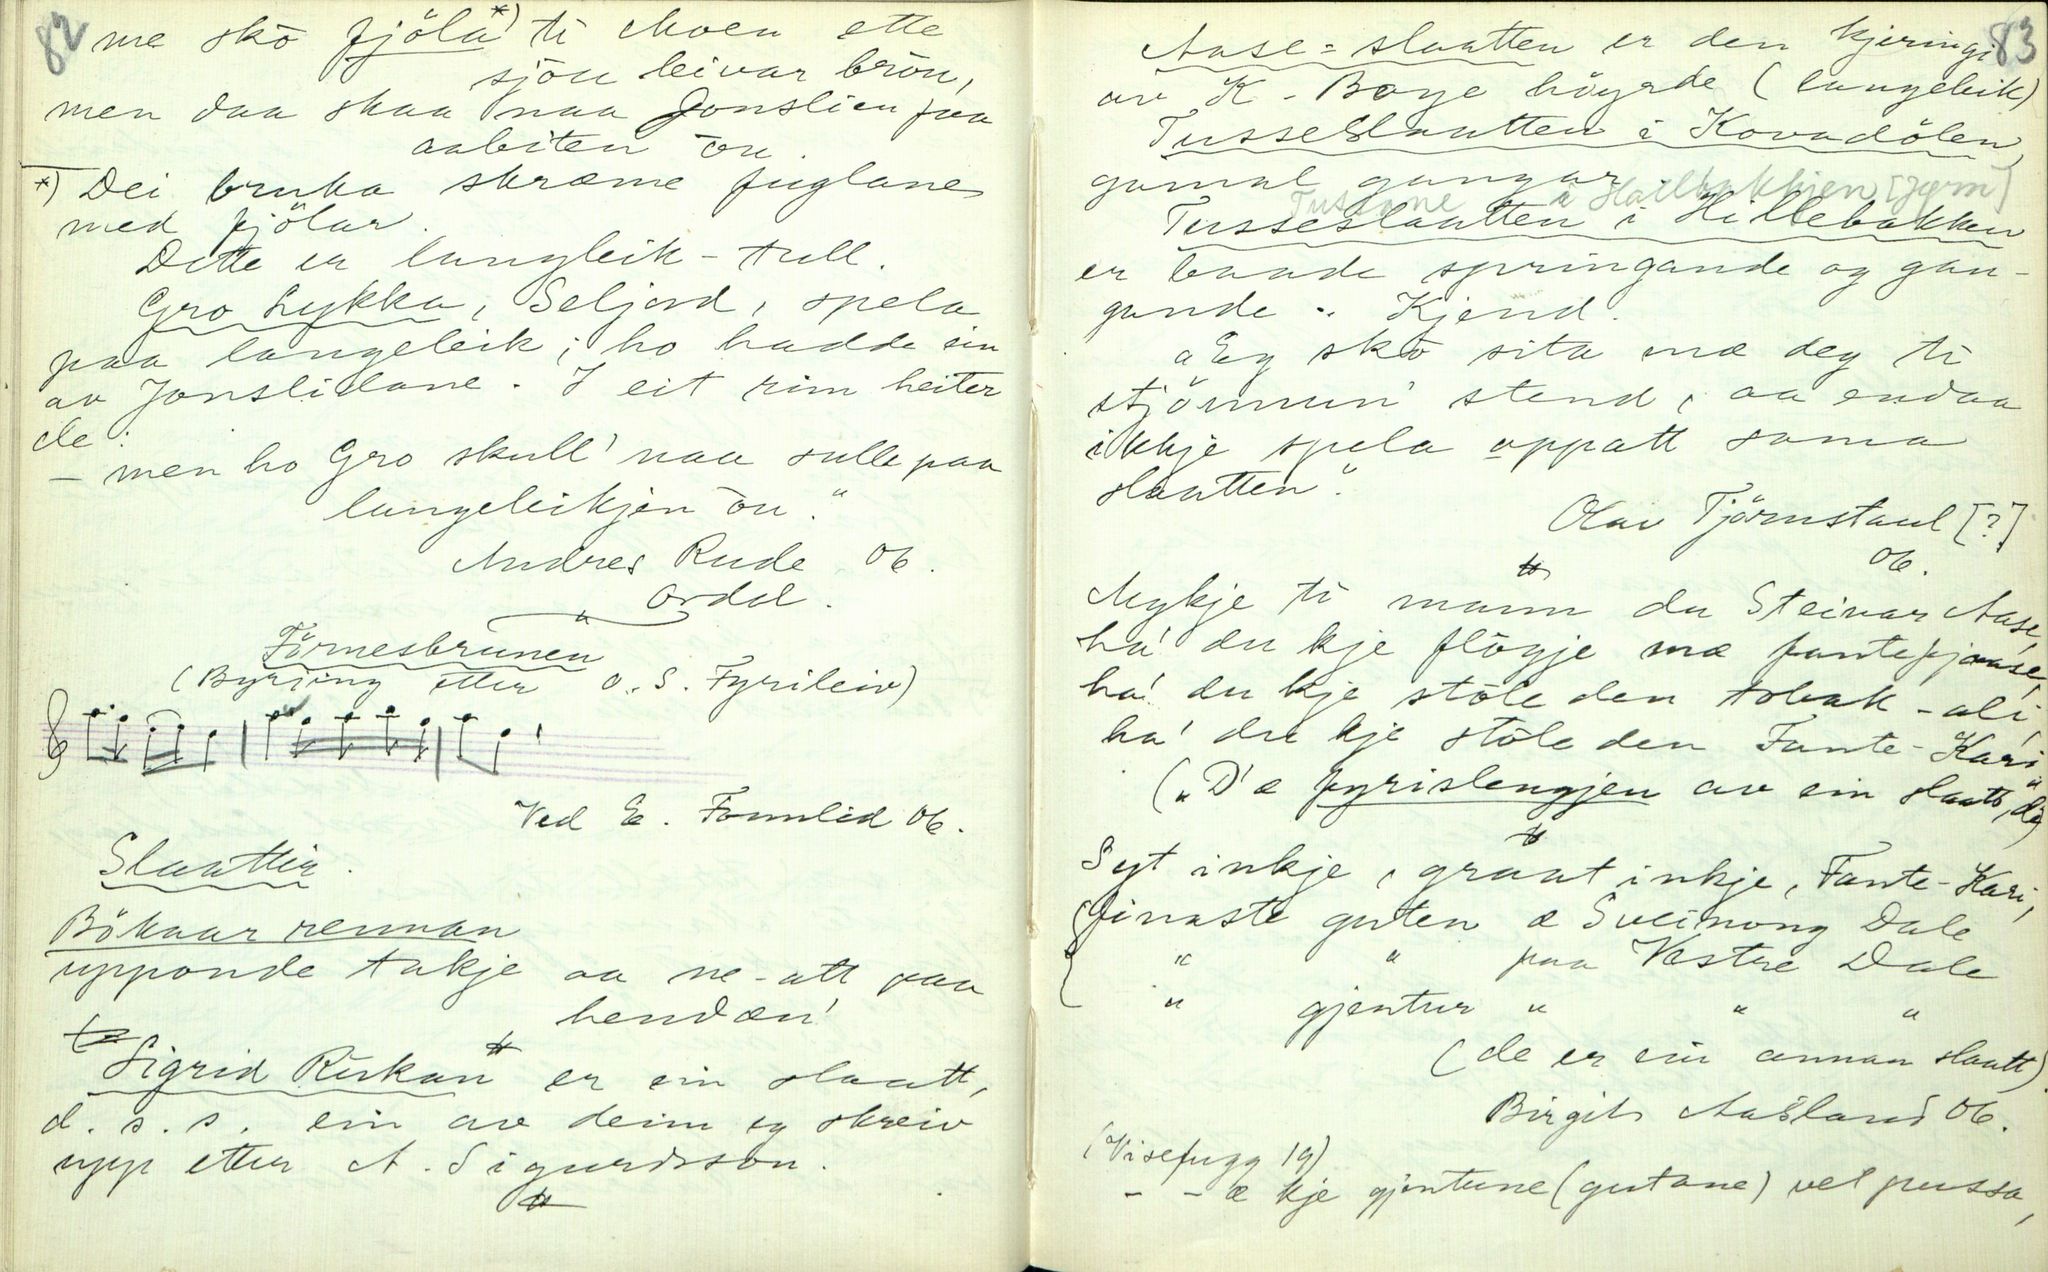 82
me skō fjöla *) ti Moen ette
sjōu leivar brōu,
men daa skaa naa Jonslien faa
aabiten ōu.
*) Dei bruka skræme fuglane
med fjölar.
Dette er langleik-tull.
Gro Lykka, Seljord, spela
paa langeleik; ho hadde ein
av Jonslidane. I eit rim heiter
de:
– men ho Gro skull' naa sulle paa
langeleikjen ōu."
Andres Rude 06.
Ordal.
Förnesbrunen
(Byrjing etter O. S. Fyrileiv)
Ved E. Fonnlid 06.
Slaattir.
Bökaar rennan
upponde takje aa ne-att paa
hendæn!
Sigrid Riskan er ein slaatt,
d. s. s. ein av deim eg skreiv
upp etter A. Sigurdsson.
83
Aase-slaatten er den kjeringi
av K- Boye höyrde (langeleik)
Tusseslaatten i Kovadölen,
gamal gangar.
Tussane i Haillbakkjen [
Tusseslaatten i Hillebakken
er baade springande og gan-
gande. Kjend.
"Eg skō sita mæ deg ti
stjörnun' stend, aa endaa
ikkje spela oppatt sama
slaatten".
Olav Tjörnstaul [?]
06.
Mykje ti mann du Steivar Aase,
ha' du kje flögje mæ fantepjaase,
ha' du kje stōle den tobak-ali,
ha' du kje stōle den Fante-Kari
("D'æ fyrislengjen av ein slaatt, de")
Syt inkje, graat inkje, Fante-Kari,
finaste guten æ Sveinong Dale
" " paa Vestre Dale
" gjentur " " "
(de er ein annan slaatt).
Birgit Aasland 06.
(Visefugg 19)
– – æ kje gjentune (gutane) vel pussa,